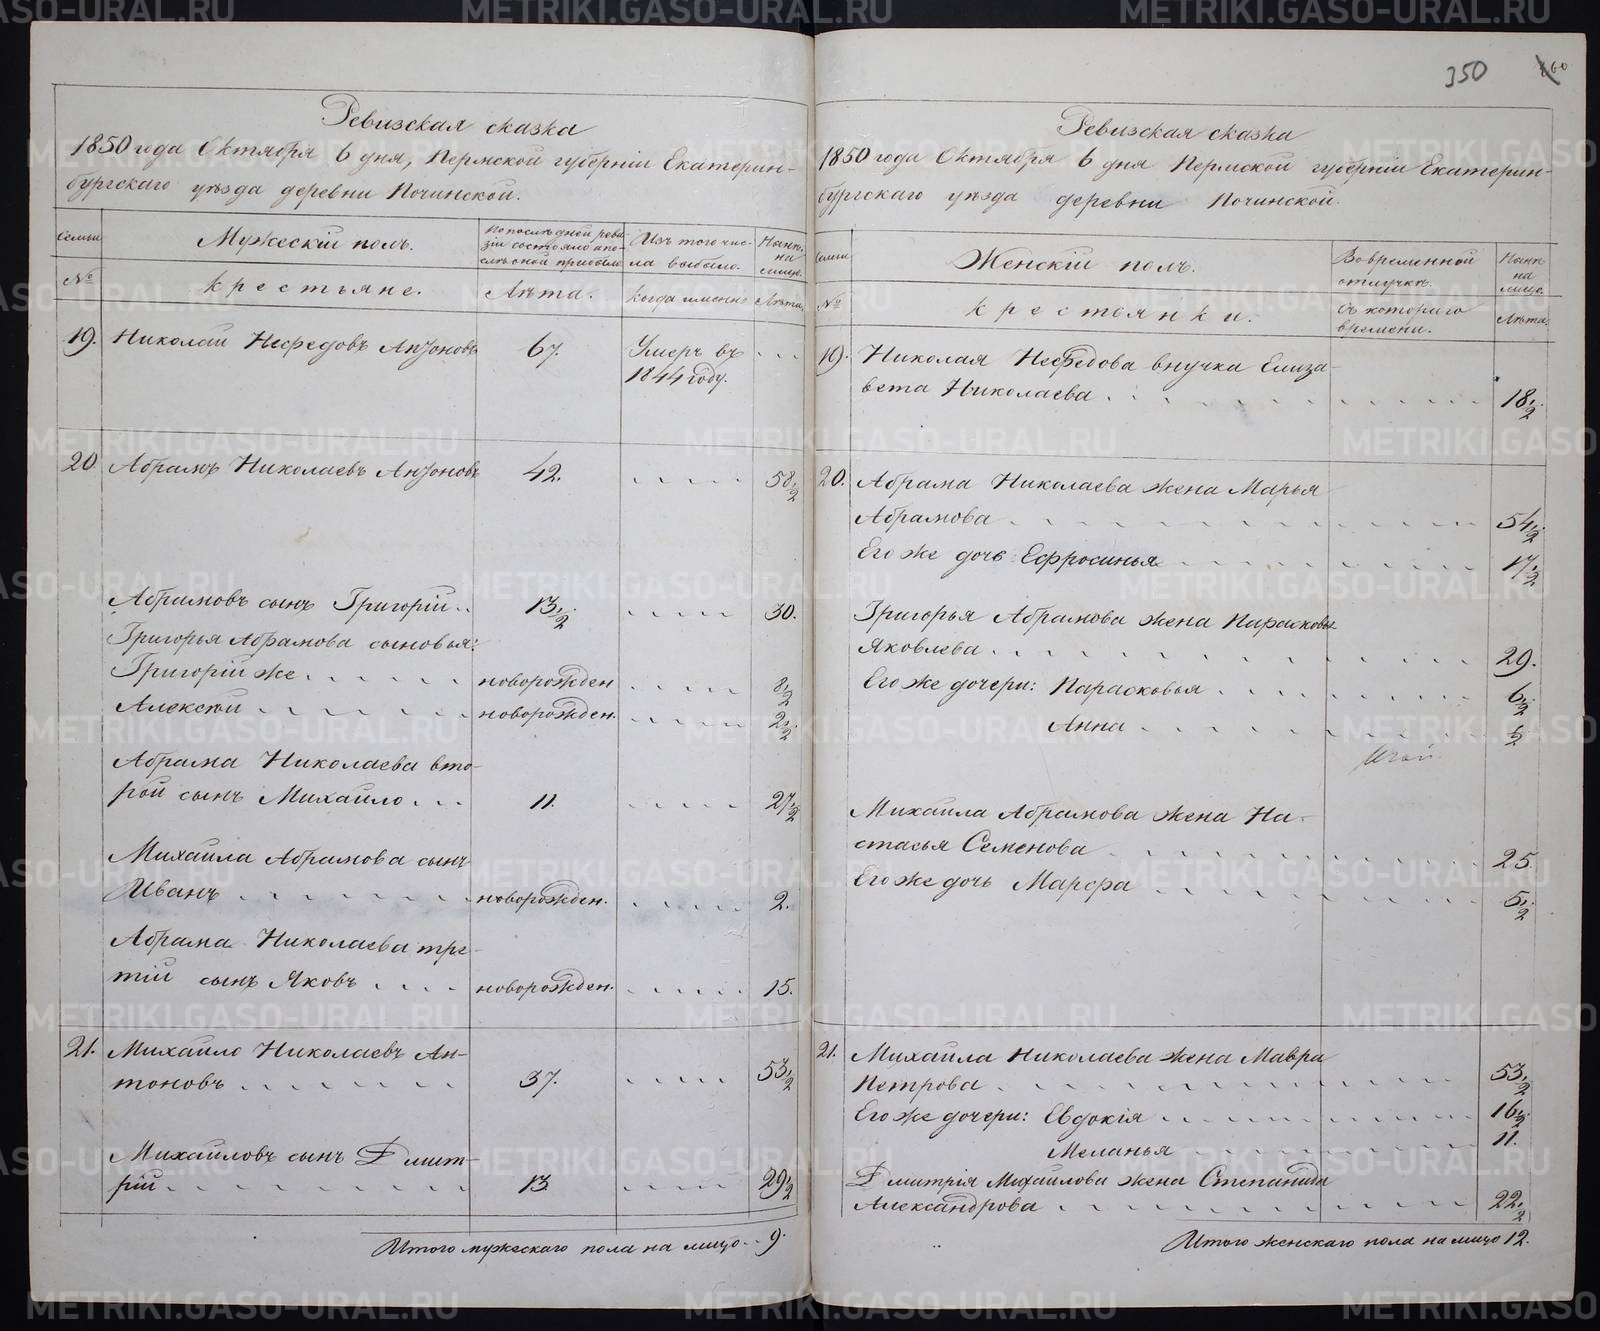 350
Ревизская сказка
1850 года Октября 6 дня, Пермской губерніи Екатерин-
бургскаго уѣзда деревни Починской.
Семьи
Мужескій полъ.
По послѣдней реви-
зіи состояло и по-
слѣ оной прибыло
Изъ того чис-
ла выбыло.
Нынѣ
на
лицо.
№
крестьяне.
Лѣта.
Когда именно
Лѣта.
19. Николай Нефедовъ Антоновъ 67. Умеръ въ
1844 году.
20 Абрамъ Николаевъ Антоновъ 42. 58½
Абрамовъ сынъ Григорій 13½ 30.
Григорья Абрамова сыновья:
Григорій же новорожден 8½
Алексѣй новорожден. 2½
Абрама Николаева вто-
рой сынъ Михайло 11. 27½
Михайла Абрамова сынъ
Иванъ новорожден. 2.
Абрама Николаева тре-
тій сынъ Яковъ новорожден. 15.
21. Михайло Николаевъ Ан-
тоновъ 37. 53½
Михайловъ сынъ Дмит-
рій 13 29½
Итого мужескаго пола на лицо 9.
Ревизская сказка
1850 года Октября 6 дня Пермской губерніи Екатерин-
бургскаго уѣзда деревни Починской.
Семьи
Женскій полъ.
Во временной
отлучкѣ.
Нынѣ
на
лицо.
№
крестьянки.
Съ котораго
времени.
Лѣта.
19. Николая Нефедова внучка Елиза-
вета Николаева 18½
20. Абрама Николаева жена Марья
Абрамова 54½
Его же дочь Ефросинья 17½
Григорья Абрамова жена Парасковья
Яковлева 29.
Его же дочери: Парасковья 6½
Анна ½
Михайла Абрамова жена На-
стасья Семенова 25.
Его же дочь Марфа 5½
21. Михайла Николаева жена Мавра
Петрова 53½
Его же дочери: Евдокія 16½
Меланья 11.
Дмитрія Михайлова жена Степанида
Александрова 22½
Итого женскаго пола на лицо 12.
METRIKI.GASO-URAL.RU